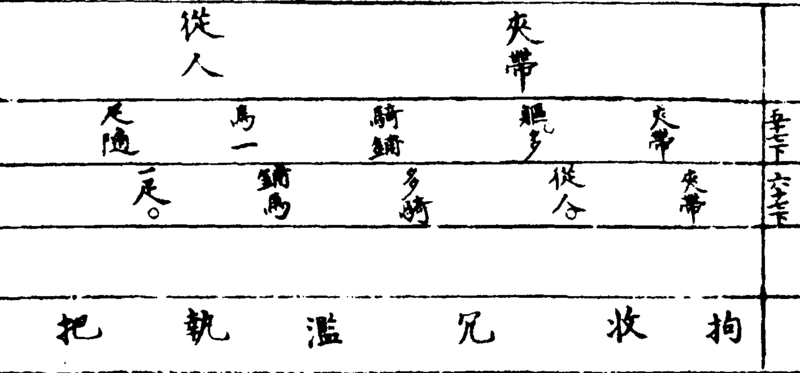 夾帶 從人
五十七下 夾帶 軀、多 騎鋪 馬一 疋隨
六十七下 夾帶 從人、 多騎 鋪馬 一疋。
拘 收 冗 濫 執 把